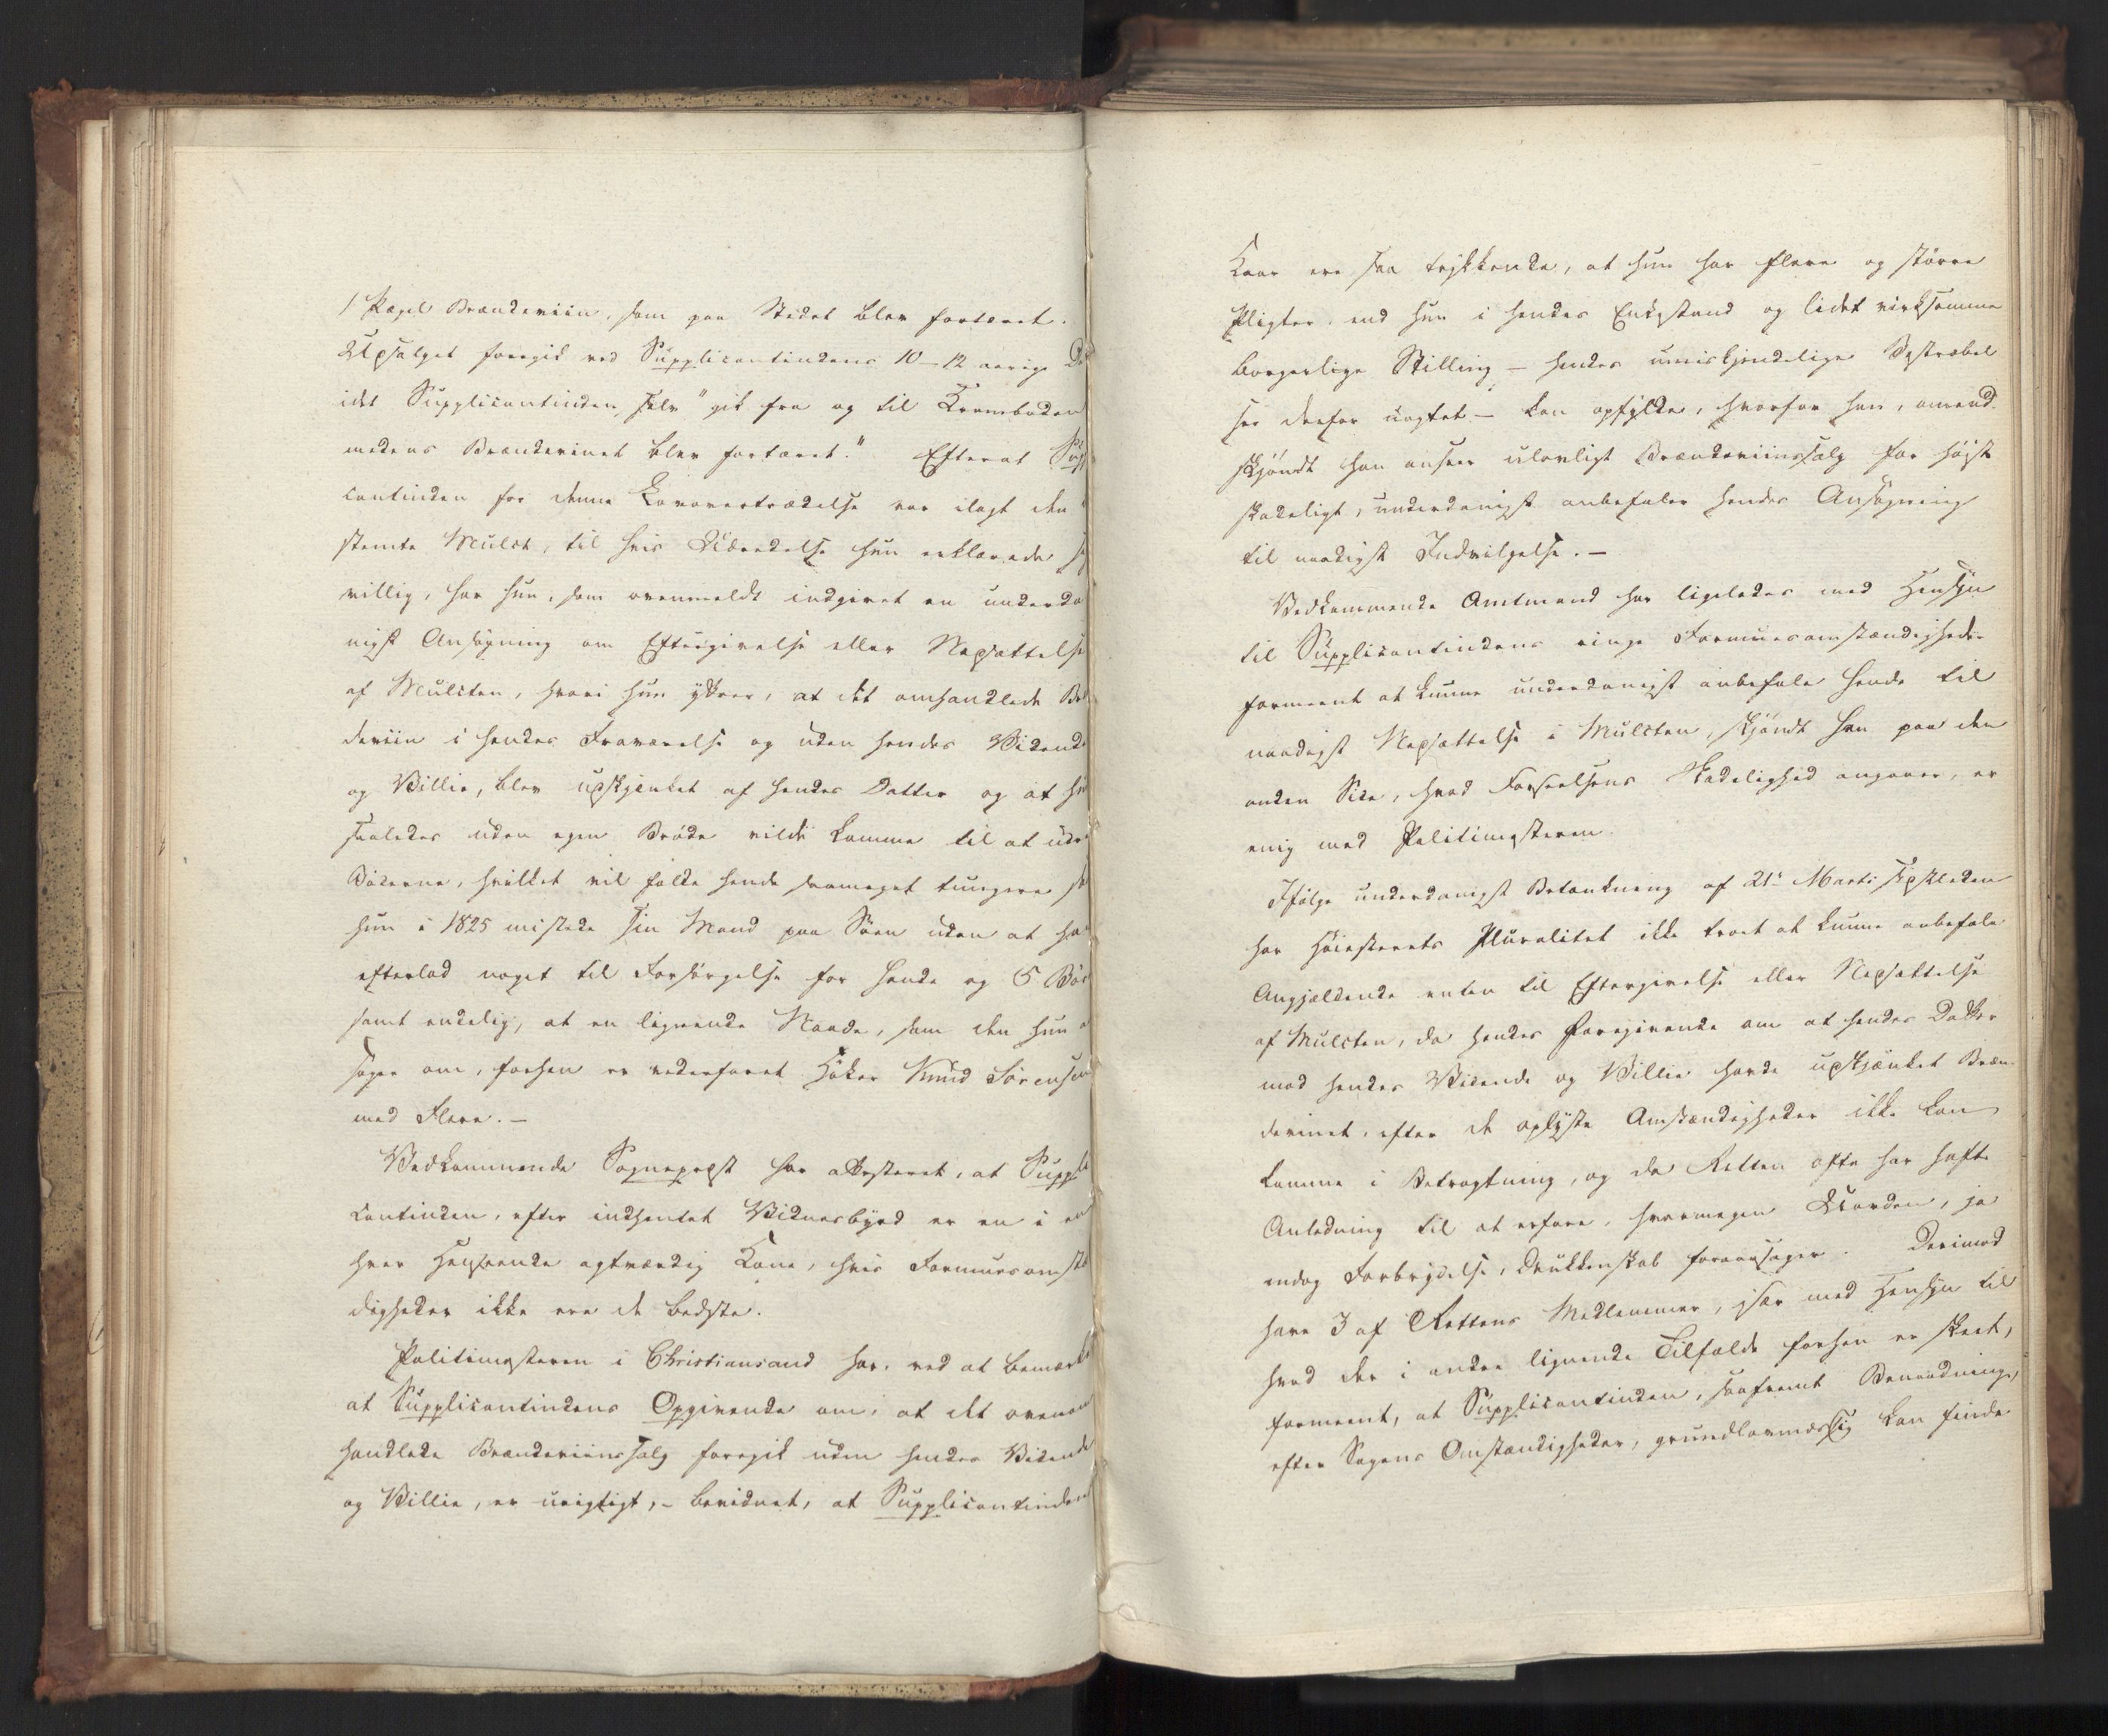 1 Pægel Brændeviin, som paa Stedet blev fortæret.
Udsalget foregik ved Supplicantindens 10-12 aarige
idet Supplicantinden selv "gik fra og til Kramboden
medens Brændevinet blev fortæret." Efterat Sup
cantinden for denne Lovovertrædelse var ilagt den
stemte Mulct, til hvis Udredelse hun erklærede
villig, har hun, som ovenmeldt indgivet en underda
nigst Ansøgning om Eftergivelse eller Nedsættelse
af Mulcten, hvori hun yttrer, at det omhandlede Bræn
deviin i hendes Fraværelse og uden hendes Vidende
og Villie, blev udskjenket af hendes Datter og at hun
saaledes uden egen Brøde vilde komme til at
Bøderne, hvilket vil falde hende saameget tungere
hun i 1825 mistede sin Mand paa Søen uden at han
efterlod noget til Forsørgelse for hende og 5 Børn
samt endelig, at en lignende Naade, som den hun
søger om, forhen er vederfaret Høker Knud Sörensen
med Flere.—
Vedkommende Sogneprest har attesteret, at Suppli
cantinden, efter indhentet Vidnesbyrd er en i en
hver Henseende agtværdig Kone, hvis Formuesomstæn
digheder ikke ere de bedste.
Politimesteren i Christiansand har, ved at bemærke
at Supplicantindens Opgivende om, at det ovenom
handlede Brændeviinssalg foregik uden hendes Vidende
og Villie, er urigtigt,- bevidnet, at Supplicantindens
Kaar ere saa trykkende, at hun har flere og større
Pligter, end hun i hendes Enkestand og lidet virksomme
borgerlige Stilling — hendes umiskjendelige Bestræbel
ser derfor uagtet — kan opfylde, hvorfor han, omend-
skjøndt han anseer ulovligt Brændeviinssalg for højst
skadeligt, underdanigst anbefaler hendes Ansøgning
til naadigst Indvilgelse.—
Vedkommende Amtmand har ligeledes med Hensyn
til Supplicantindens ringe Formuesomstændigheder
formeent at kunne underdanigst anbefale hende til
naadigst Nedsættelse i Mulcten, skjøndt han paa den
anden Side, hvad Forseelsens Skadelighed angaaer, er
enig med Politimesteren.
Ifølge underdanigst Betænkning af 21de Marts sidstleden
har Høiesterets Pluralitet ikke troet at kunne anbefale
Angjældende enten til Eftergivelse eller Nedsættelse
af Mulcten, da hendes Foregivende om at hendes Datter
mod hendes Vidende og Villie havde udskjænket Bræn-
devinet, efter de oplyste Omstændigheder ikke kan
komme i Betragtning, og da Retten ofte har havt
Anledning til at erfare, hvormegen Uorden, ja
endog Forbrydelse, Drukkenskab foraarsager. Derimod
have 3 af Rettens Medlemmer, især med Hensyn til
hvad der i andre lignende Tilfælde forhen er skeet,
formeent, at Supplicantinden, saafremt Benaadning,
efter Sagens Omstændigheder, grundlovmæssig kan finde